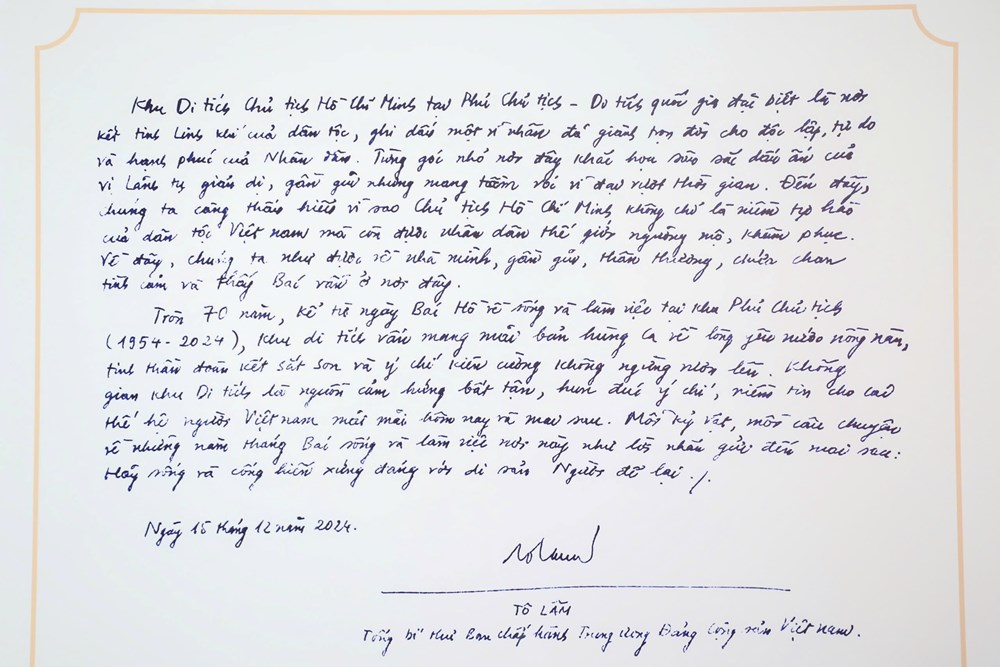 Khu Di tích Chủ tịch Hồ Chí Minh tại Phủ Chủ tịch - Di tích quốc gia đặc biệt là nơi
kết tinh Linh khí của dân tộc, ghi dấu một vĩ nhân đã giành trọn đời cho độc lập, tự do
và hạnh phúc của Nhân dân. Từng góc nhỏ nơi đây khắc họa sâu sắc dấu ấn của
vị Lãnh tụ giản dị, gần gũi nhưng mang tầm vóc vĩ đại vượt thời gian. Đến đây,
chúng ta càng thấu hiểu vì sao Chủ tịch Hồ Chí Minh không chỉ là niềm tự hào
của dân tộc Việt nam mà còn được nhân dân thế giới ngưỡng mộ, khâm phục.
Về đây, chúng ta như được về nhà mình, gần gũi, thân thương, chứa chan
tình cảm và thấy Bác vẫn ở nơi đây.
Tròn 70 năm, kể từ ngày Bác Hồ về sống và làm việc tại khu Phủ Chủ tịch
(1954-2024), Khu di tích vẫn mang mãi bản hùng ca về lòng yêu nước nồng nàn,
tinh thần đoàn kết sắt son và ý chí kiên cường không ngừng vươn lên. Không
gian Khu Di tích là nguồn cảm hứng bất tận, hun đúc ý chí, niềm tin cho các
thế hệ người Việt nam mãi mãi hôm nay và mai sau. Mỗi kỷ vật, mỗi câu chuyện
về những năm tháng Bác sống và làm việc nơi này như lời nhắn gửi đến mai sau:
Hãy sống và cống hiến xứng đáng với di sản Người để lại ./.
Ngày 15 tháng 12 năm 2024.
TÔ LÂM
Tổng bí thư Ban chấp hành Trung ương Đảng Cộng sản Việt nam.